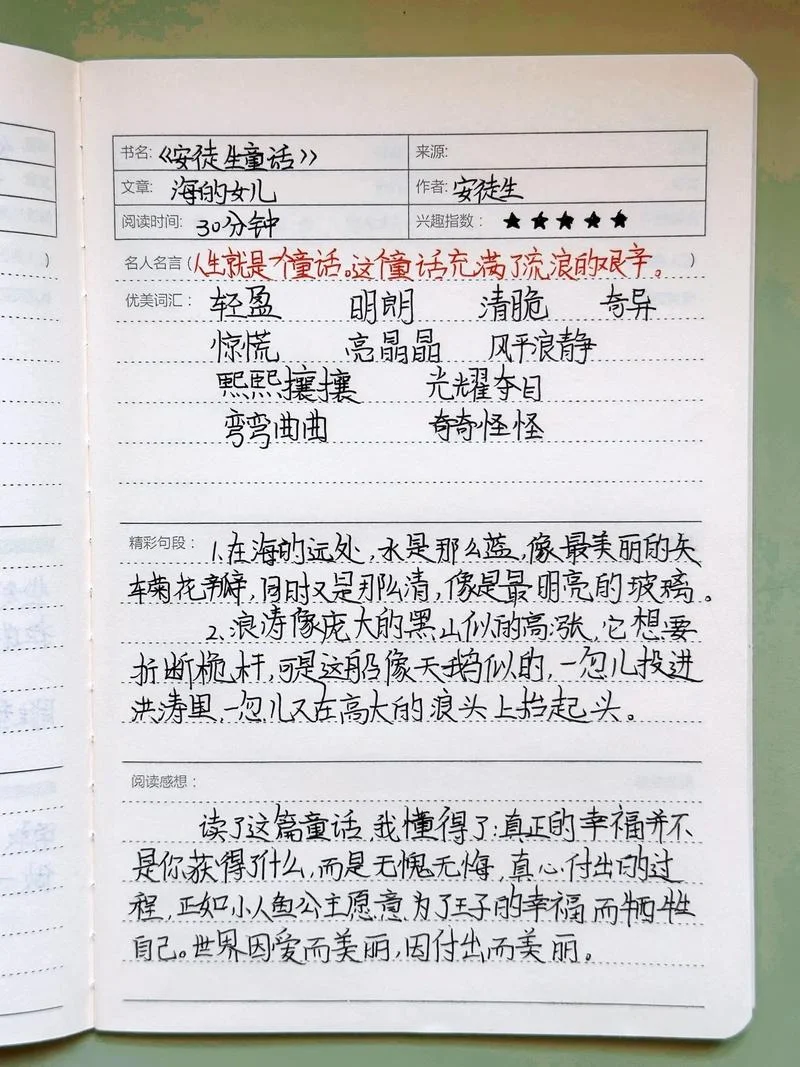 书名:《安徒生童话》 来源:
文章: 海的女儿 作者: 安徒生
阅读时间: 30分钟 兴趣指数: ★★★★★
名人名言(人生就是个童话。这个童话充满了流浪的艰辛。)
优美词汇: 轻盈 明朗 清脆 奇异
惊慌 亮晶晶 风平浪静
熙熙攘攘 光耀夺目
弯弯曲曲 奇奇怪怪
精彩句段: 1.在海的远处,水是那么蓝,像最美丽的矢
车菊花瓣,同时又是那么清,像是最明亮的玻璃。
2.浪涛像庞大的黑山似的高涨,它想要
折断桅杆,可是这船像天鹅似的,一忽儿投进
洪涛里,一忽儿又在高大的浪头上抬起头。
阅读感想:
读了这篇童话,我懂得了:真正的幸福并不
是你获得了什么,而是无愧无悔,真心付出的过
程,正如小人鱼公主愿意为了王子的幸福而牺牲
自己。世界因爱而美丽,因付出而美丽。